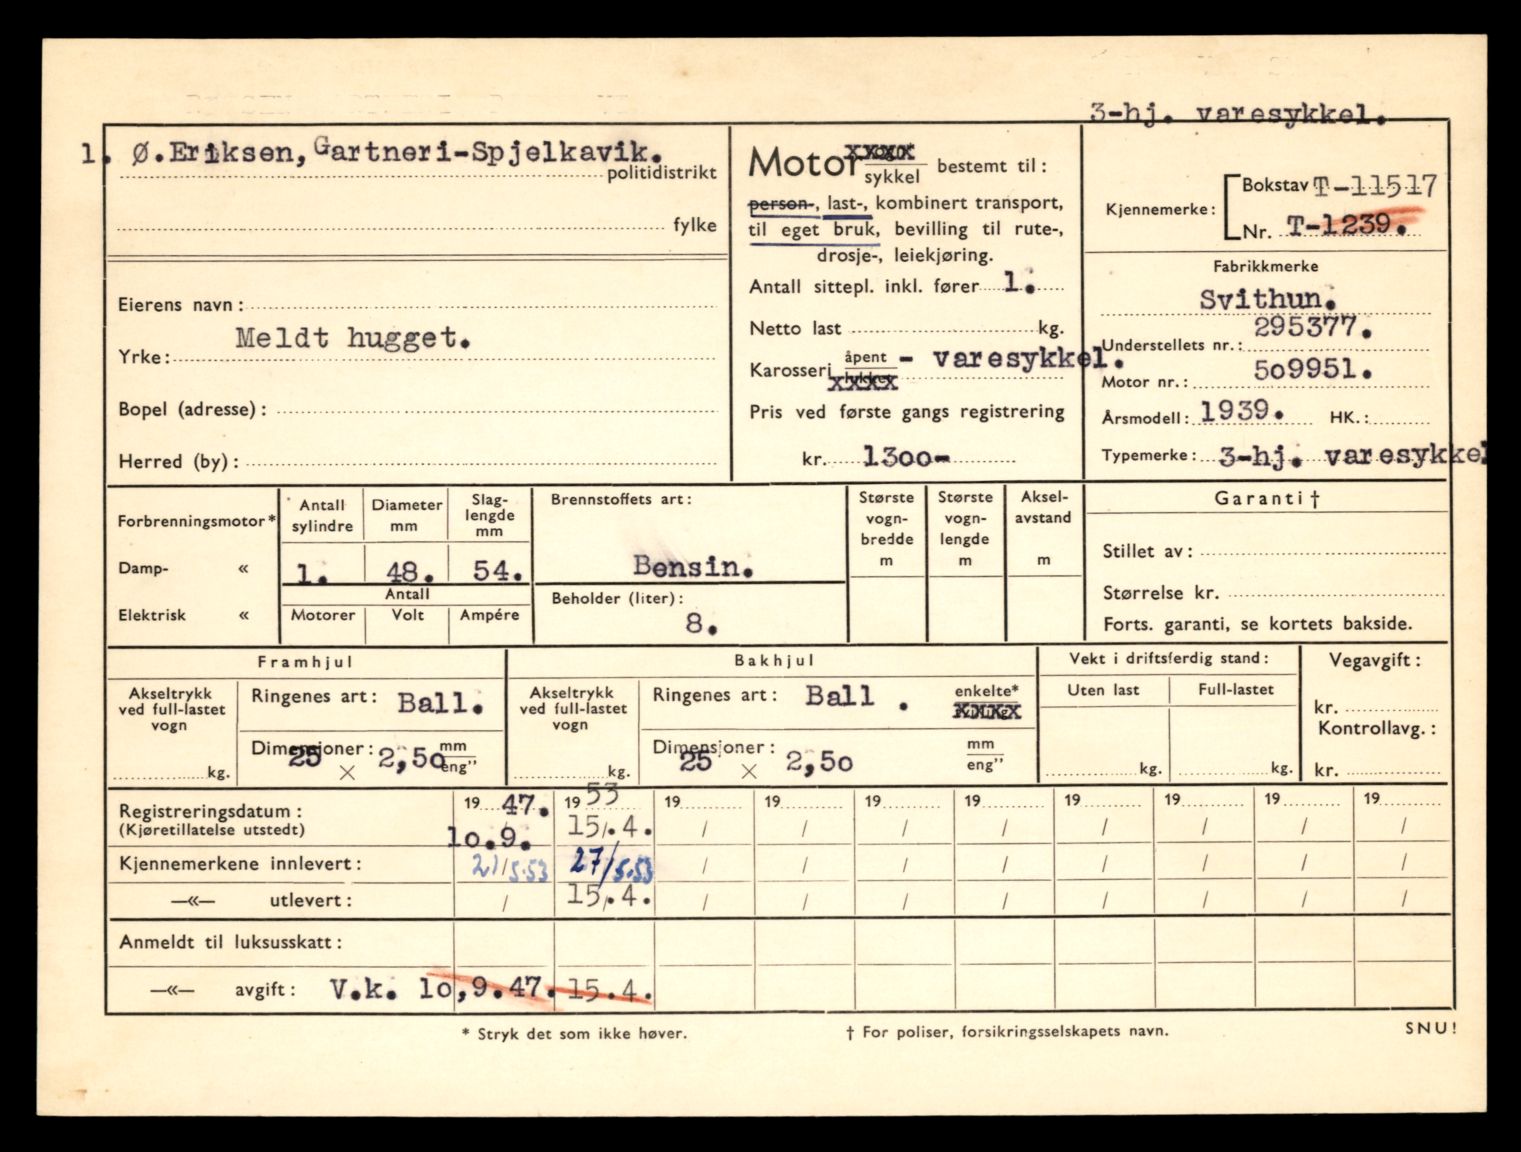 3-hj. varesykkel.
1. Ø.Eriksen, Gartneri-Spjelkavik.
politidistrikt
fylke
Eierens navn:
Meldt hugget.
Yrke:
Bopel (adresse):
Herred (by):
Motor xxxx
sykkel bestemt til:
person-, last-, kombinert transport,
til eget bruk, bevilling til rute-,
drosje-, leiekjøring.
Antall sittepl. inkl. fører 1.
Netto last kg.
Karosseri åpent - varesykkel.
lukket xxxx
Pris ved første gangs registrering
kr. 13oo-
Kjennemerke: Bokstav T-11517
Nr. T-1239.
Fabrikkmerke
Svithun.
Understellets nr.: 295377.
Motor nr.: 5o9951.
Årsmodell: 1939. HK.:
Typemerke: 3-hj. varesykkel
Forbrenningsmotor*
Damp- «
Elektrisk «
Antall sylindre
Diameter mm
Slag-lengde mm
1. 48. 54.
Antall
Motorer Volt Ampére
Brennstoffets art:
Bensin.
Beholder (liter):
8.
Største vogn-bredde m
Største vogn-lengde m
Aksel-avstand m
Garanti †
Stillet av:
Størrelse kr.
Forts. garanti, se kortets bakside.
Framhjul
Akseltrykk ved full-lastet vogn
kg.
Ringenes art: Ball.
Dimensjoner: 25 × 2,5o mm eng”
Bakhjul
Akseltrykk ved full-lastet vogn
kg.
Ringenes art: Ball . enkelte*
xxxx
Dimensjoner: 25 × 2,5o mm eng”
Vekt i driftsferdig stand:
Uten last Full-lastet
kg. kg.
Vegavgift:
kr.
Kontrollavg.:
kr.
Registreringsdatum: 19 47. 19 53 19 19 19 19 19 19 19 19
(Kjøretillatelse utstedt) 1o.9. 15/.4. / / / / / / / /
Kjennemerkene innlevert: 21/5.53 27/5.53 / / / / / / / /
—«— utlevert: / 15/.4. / / / / / / / /
Anmeldt til luksusskatt:
—«— avgift: V.k. 1o,9.47. 15.4.
* Stryk det som ikke høver.
† For poliser, forsikringsselskapets navn.
SNU!